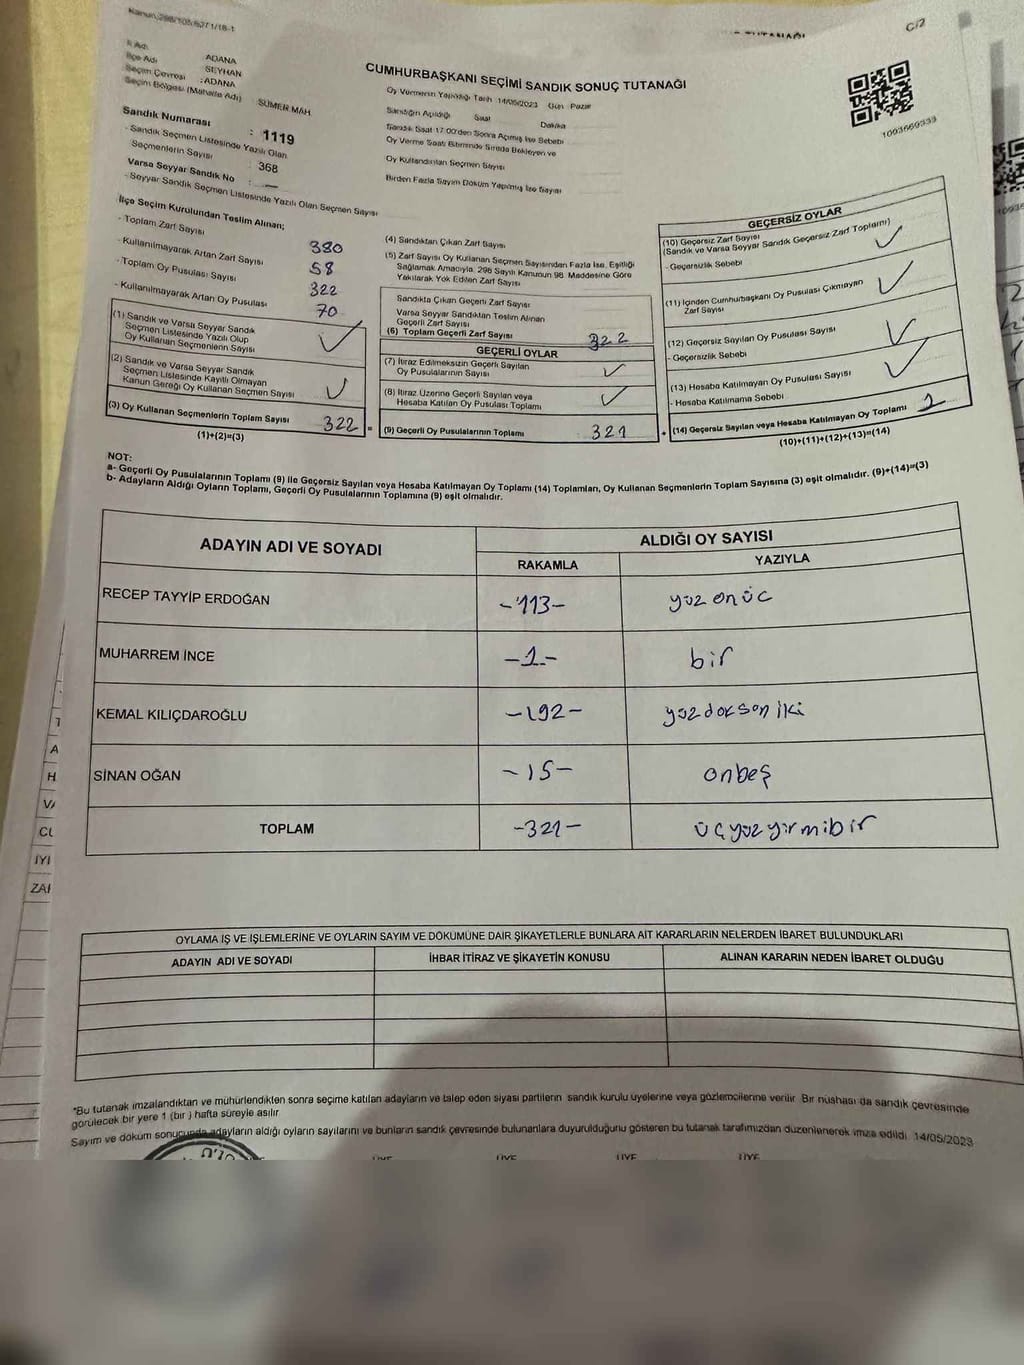 Kanun:298/105/6271/18-1
C/2
İl Adı ADANA
İlçe Adı SEYHAN
Seçim Çevresi : ADANA
Seçim Bölgesi (Mahalle Adı) SÜMER MAH
Sandık Numarası : 1119
- Sandık Seçmen Listesinde Yazılı Olan
Seçmenlerin Sayısı : 368
Varsa Seyyar Sandık No : —
- Seyyar Sandık Seçmen Listesinde Yazılı Olan Seçmen Sayısı
CUMHURBAŞKANI SEÇİMİ SANDIK SONUÇ TUTANAĞI
Oy Vermenin Yapıldığı Tarih 14/05/2023 Gün Pazar
Sandığın Açıldığı Saat Dakika
Sandık Saat 17.00'den Sonra Açılmış İse Sebebi
Oy Verme Saati Bitiminde Sırada Bekleyen ve
Oy Kullandırılan Seçmen Sayısı
Birden Fazla Sayım Döküm Yapılmış İse Sayısı
1093669333
İlçe Seçim Kurulundan Teslim Alınan;
- Toplam Zarf Sayısı 380
- Kullanılmayarak Artan Zarf Sayısı 58
- Toplam Oy Pusulası Sayısı 322
- Kullanılmayarak Artan Oy Pusulası 70
(1) Sandık ve Varsa Seyyar Sandık
Seçmen Listesinde Yazılı Olup
Oy Kullanan Seçmenlerin Sayısı
(2) Sandık ve Varsa Seyyar Sandık
Seçmen Listesinde Kayıtlı Olmayan
Kanun Gereği Oy Kullanan Seçmen Sayısı
(3) Oy Kullanan Seçmenlerin Toplam Sayısı 322 =
(1)+(2)=(3)
(4) Sandıktan Çıkan Zarf Sayısı
(5) Zarf Sayısı Oy Kullanan Seçmen Sayısından Fazla İse, Eşitliği
Sağlamak Amacıyla, 298 Sayılı Kanunun 98. Maddesine Göre
Yakılarak Yok Edilen Zarf Sayısı
Sandıkta Çıkan Geçerli Zarf Sayısı
Varsa Seyyar Sandıktan Teslim Alınan
Geçerli Zarf Sayısı
(6) Toplam Geçerli Zarf Sayısı 322
GEÇERLİ OYLAR
(7) İtiraz Edilmeksizin Geçerli Sayılan
Oy Pusulalarının Sayısı
(8) İtiraz Üzerine Geçerli Sayılan veya
Hesaba Katılan Oy Pusulası Toplamı
(9) Geçerli Oy Pusulalarının Toplamı 321 +
GEÇERSİZ OYLAR
(10) Geçersiz Zarf Sayısı
(Sandık ve Varsa Seyyar Sandık Geçersiz Zarf Toplamı)
- Geçersizlik Sebebi
(11) İçinden Cumhurbaşkanı Oy Pusulası Çıkmayan
Zarf Sayısı
(12) Geçersiz Sayılan Oy Pusulası Sayısı
- Geçersizlik Sebebi
(13) Hesaba Katılmayan Oy Pusulası Sayısı
- Hesaba Katılmama Sebebi
(14) Geçersiz Sayılan veya Hesaba Katılmayan Oy Toplamı 1
(10)+(11)+(12)+(13)=(14)
NOT:
a- Geçerli Oy Pusulalarının Toplamı (9) ile Geçersiz Sayılan veya Hesaba Katılmayan Oy Toplamı (14) Toplamları, Oy Kullanan Seçmenlerin Toplam Sayısına (3) eşit olmalıdır. (9)+(14)=(3)
b- Adayların Aldığı Oyların Toplamı, Geçerli Oy Pusulalarının Toplamına (9) eşit olmalıdır.
ADAYIN ADI VE SOYADI ALDIĞI OY SAYISI
RAKAMLA YAZIYLA
RECEP TAYYİP ERDOĞAN -113- yüz onüc
MUHARREM İNCE -1- bir
KEMAL KILIÇDAROĞLU -192- yüzdoksaniki
SİNAN OĞAN -15- onbeş
TOPLAM -321- üçyüzyirmibir
OYLAMA İŞ VE İŞLEMLERİNE VE OYLARIN SAYIM VE DÖKÜMÜNE DAİR ŞİKAYETLERLE BUNLARA AİT KARARLARIN NELERDEN İBARET BULUNDUKLARI
ADAYIN ADI VE SOYADI İHBAR İTİRAZ VE ŞİKAYETİN KONUSU ALINAN KARARIN NEDEN İBARET OLDUĞU
*Bu tutanak imzalandıktan ve mühürlendikten sonra seçime katılan adayların ve talep eden siyasi partilerin sandık kurulu üyelerine veya gözlemcilerine verilir. Bir nüshası da sandık çevresinde
görülecek bir yere 1 (bir) hafta süreyle asılır
Sayım ve döküm sonucunda adayların aldığı oyların sayılarını ve bunların sandık çevresinde bulunanlara duyurulduğunu gösteren bu tutanak tarafımızdan düzenlenerek imza edildi. 14/05/2023
ÜYE ÜYE ÜYE ÜYE